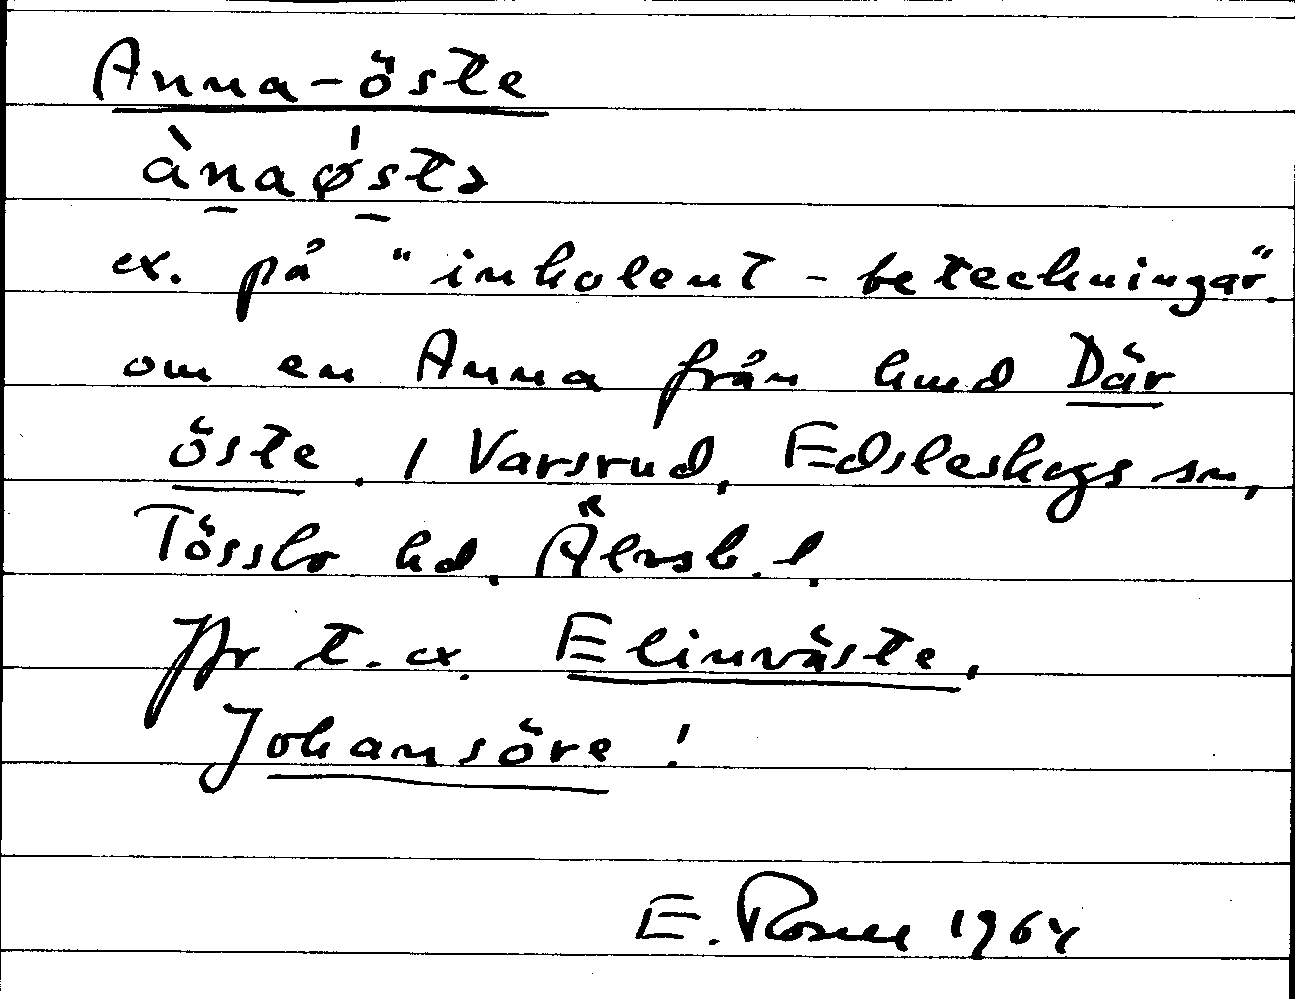 Anna-öste
ànaǿstə
ex. på "inkolent-beteckningar".
om en Anna från hmd Där
öste. I Varsrud, Edsleskogs sn,
Tössbo hd, Älvsb. l.
Jfr t. ex. Elinväste,
Johansöre!
E. Rosell 1964